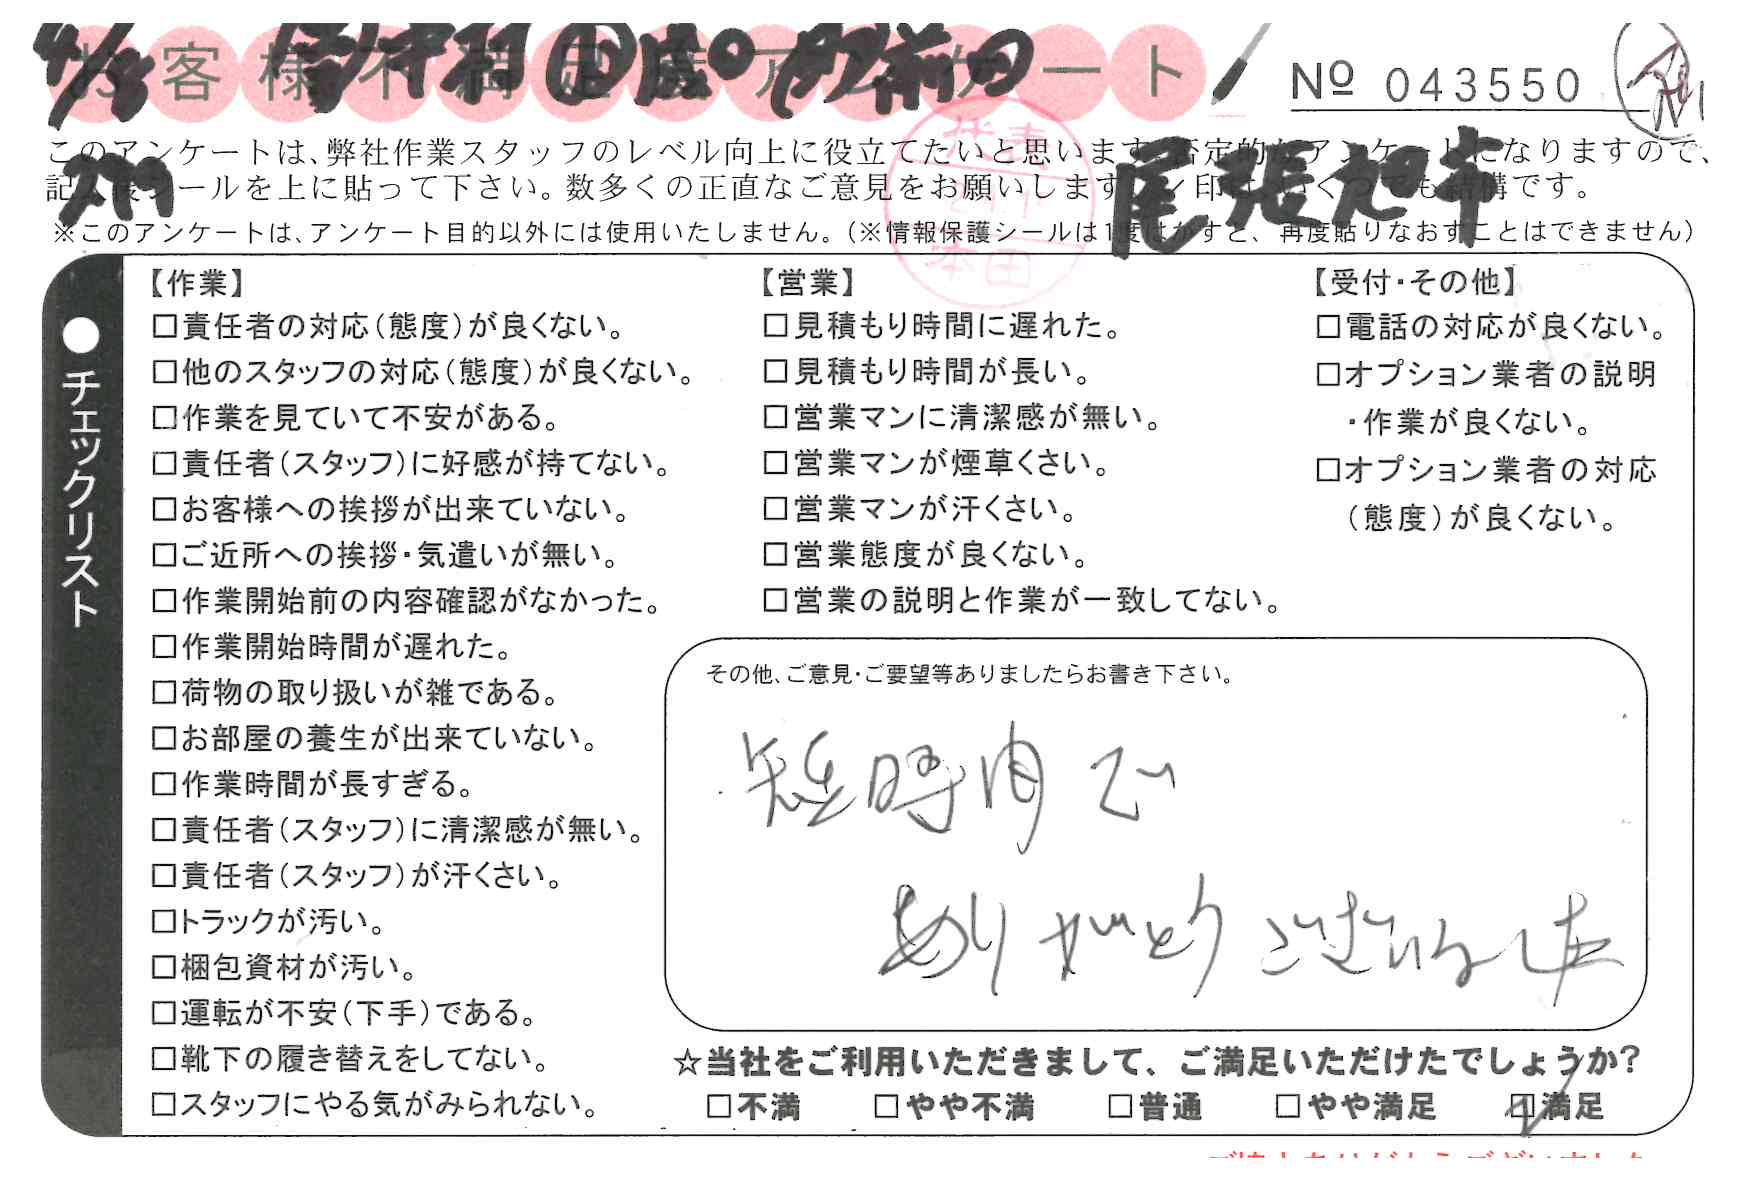 お客様不満足度アンケート
№ 043550
このアンケートは、弊社作業スタッフのレベル向上に役立てたいと思います。否定的なアンケートになりますので、
記入後シールを上に貼って下さい。数多くの正直なご意見をお願いします。レ印は、いくつでも結構です。
尾張旭市
※このアンケートは、アンケート目的以外には使用いたしません。（※情報保護シールは1度はがすと、再度貼りなおすことはできません）
代表
本田
●チェックリスト
【作業】
□責任者の対応（態度）が良くない。
□他のスタッフの対応（態度）が良くない。
□作業を見ていて不安がある。
□責任者（スタッフ）に好感が持てない。
□お客様への挨拶が出来ていない。
□ご近所への挨拶・気遣いが無い。
□作業開始前の内容確認がなかった。
□作業開始時間が遅れた。
□荷物の取り扱いが雑である。
□お部屋の養生が出来ていない。
□作業時間が長すぎる。
□責任者（スタッフ）に清潔感が無い。
□責任者（スタッフ）が汗くさい。
□トラックが汚い。
□梱包資材が汚い。
□運転が不安（下手）である。
□靴下の履き替えをしてない。
□スタッフにやる気がみられない。
【営業】
□見積もり時間に遅れた。
□見積もり時間が長い。
□営業マンに清潔感が無い。
□営業マンが煙草くさい。
□営業マンが汗くさい。
□営業態度が良くない。
□営業の説明と作業が一致してない。
【受付・その他】
□電話の対応が良くない。
□オプション業者の説明
・作業が良くない。
□オプション業者の対応
（態度）が良くない。
その他、ご意見・ご要望等ありましたらお書き下さい。
短時間で
ありがとうございました
☆当社をご利用いただきまして、ご満足いただけたでしょうか?
□不満 □やや不満 □普通 □やや満足 ☑満足